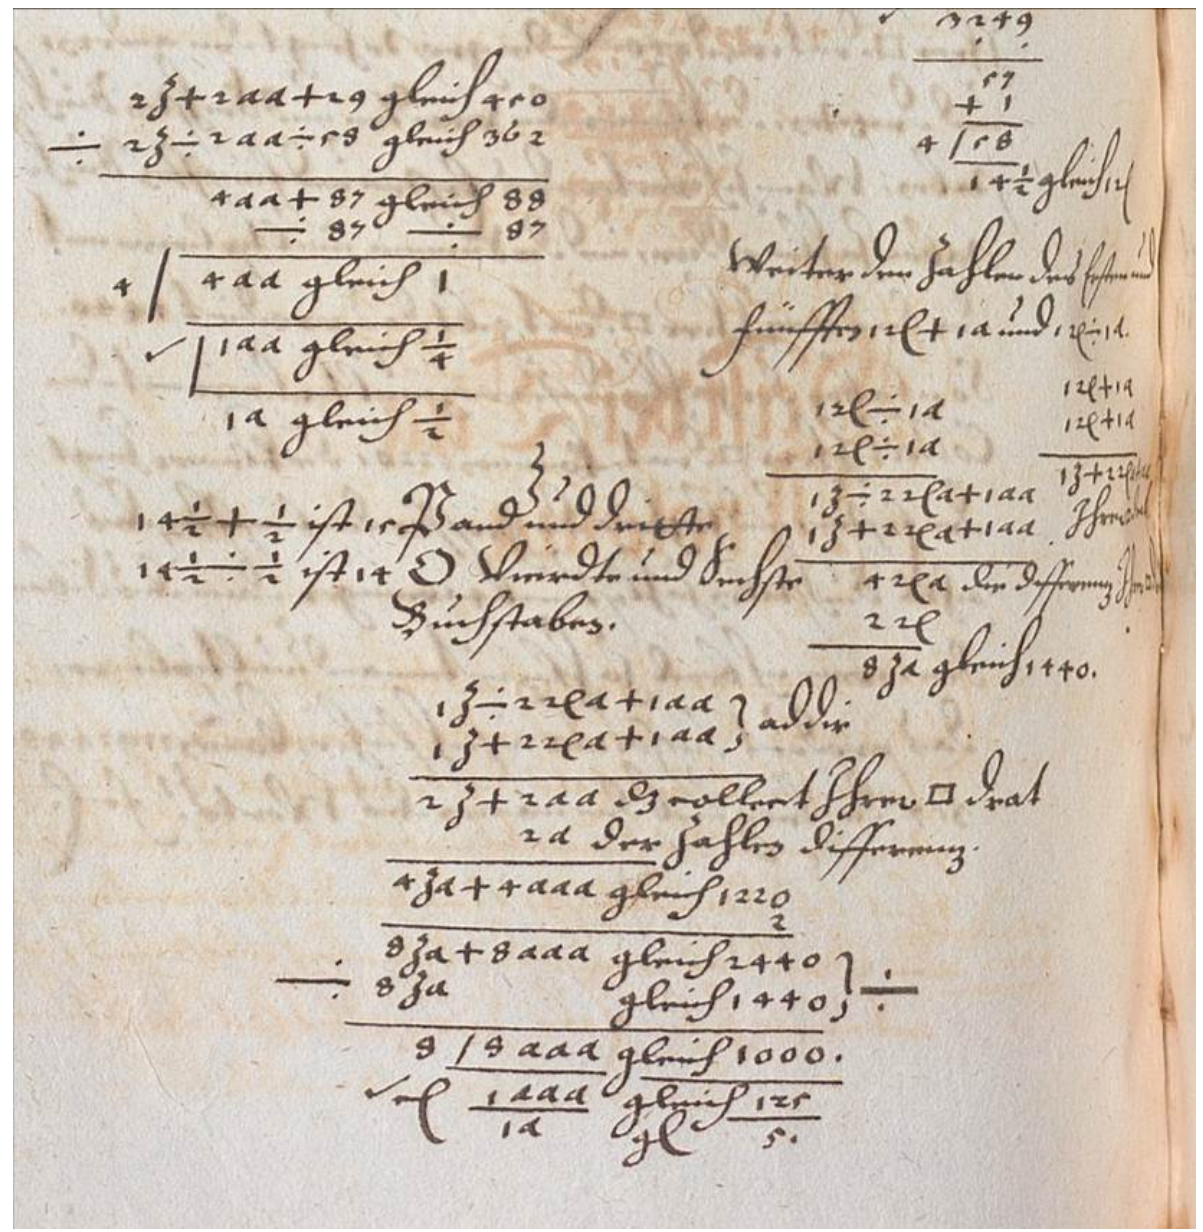 2ʒ + 2aa + 29 gleich 450
÷ 2ʒ ÷ 2aa ÷ 58 gleich 362
4aa + 87 gleich 88
÷ 87 ÷ 87
4 / 4aa gleich 1
√ 1aa gleich 1/4
1a gleich 1/2
14 1/2 + 1/2 ist 15 P and und dritte
14 1/2 ÷ 1/2 ist 14 O Vierdte und Sechste
Buchstaben.
3249
57
+ 1
4 / 58
14 1/2 gleich 12e
Weiter den Zahlen des Ersten und
fünfften 12e + 1a und 12e ÷ 1a.
12e ÷ 1a
12e ÷ 1a
1ʒ ÷ 22ea + 1aa
1ʒ + 22ea + 1aa
42ea die differenz
22e
8ʒa gleich 1440.
12e + 1a
12e + 1a
1ʒ + 22ea
1ʒ ÷ 22ea + 1aa
1ʒ + 22ea + 1aa } addir
2ʒ + 2aa dz collect Ihrer □ drat
2a der Zahlen differenz.
4ʒa + 4aaa gleich 1220
2
8ʒa + 8aaa gleich 2440
÷ 8ʒa gleich 1440 } ÷
8 / 8aaa gleich 1000.
√ce 1aaa gleich 125
1a gl 5.